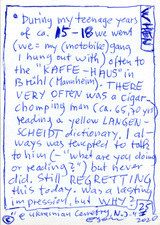 • During my teenage years
of ca. 15-18 we went
(we = my (motobike) gang
I hung out with) often to
the "KAFFE-HAUS" in
Brühl (Mannheim). THERE
VERY OFTEN WAS a cigar-
chomping man (ca. 65,70 yrs)
reading a yellow LANGEN-
SCHEIDT dictionary. I al-
ways was tempted to talk
to him (-"what are you doing
or reading?") but never
did. Still REGRETTING
this today. Was a lasting
impression, but WHY?
@ Ukrainian Cemetry, N.J.
WHEN
25
2020